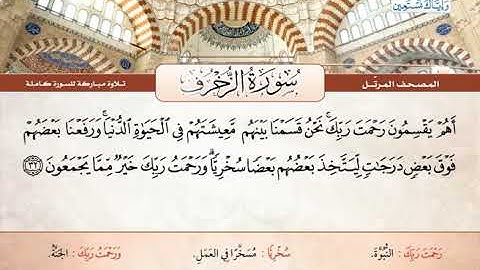 وَإِيَّاكَ نَسْتَعِينُ
المصحف المرتّل
سُورَةُ الزُّخْرُفِ
تلاوة مباركة للسورة كاملة
أَهُمْ يَقْسِمُونَ رَحْمَتَ رَبِّكَ ۚ نَحْنُ قَسَمْنَا بَيْنَهُم مَّعِيشَتَهُمْ فِي الْحَيَوٰةِ الدُّنْيَا ۚ وَرَفَعْنَا بَعْضَهُمْ
فَوْقَ بَعْضٍ دَرَجَٰتٍ لِّيَتَّخِذَ بَعْضُهُم بَعْضًا سُخْرِيًّا ۗ وَرَحْمَتُ رَبِّكَ خَيْرٌ مِّمَّا يَجْمَعُونَ ٣٢
رَحْمَتَ رَبِّكَ : النُّبُوَّةَ.
سُخْرِيًّا : مُسَخَّرًا فِي العَمَلِ.
وَرَحْمَتُ رَبِّكَ : الجَنَّةُ.